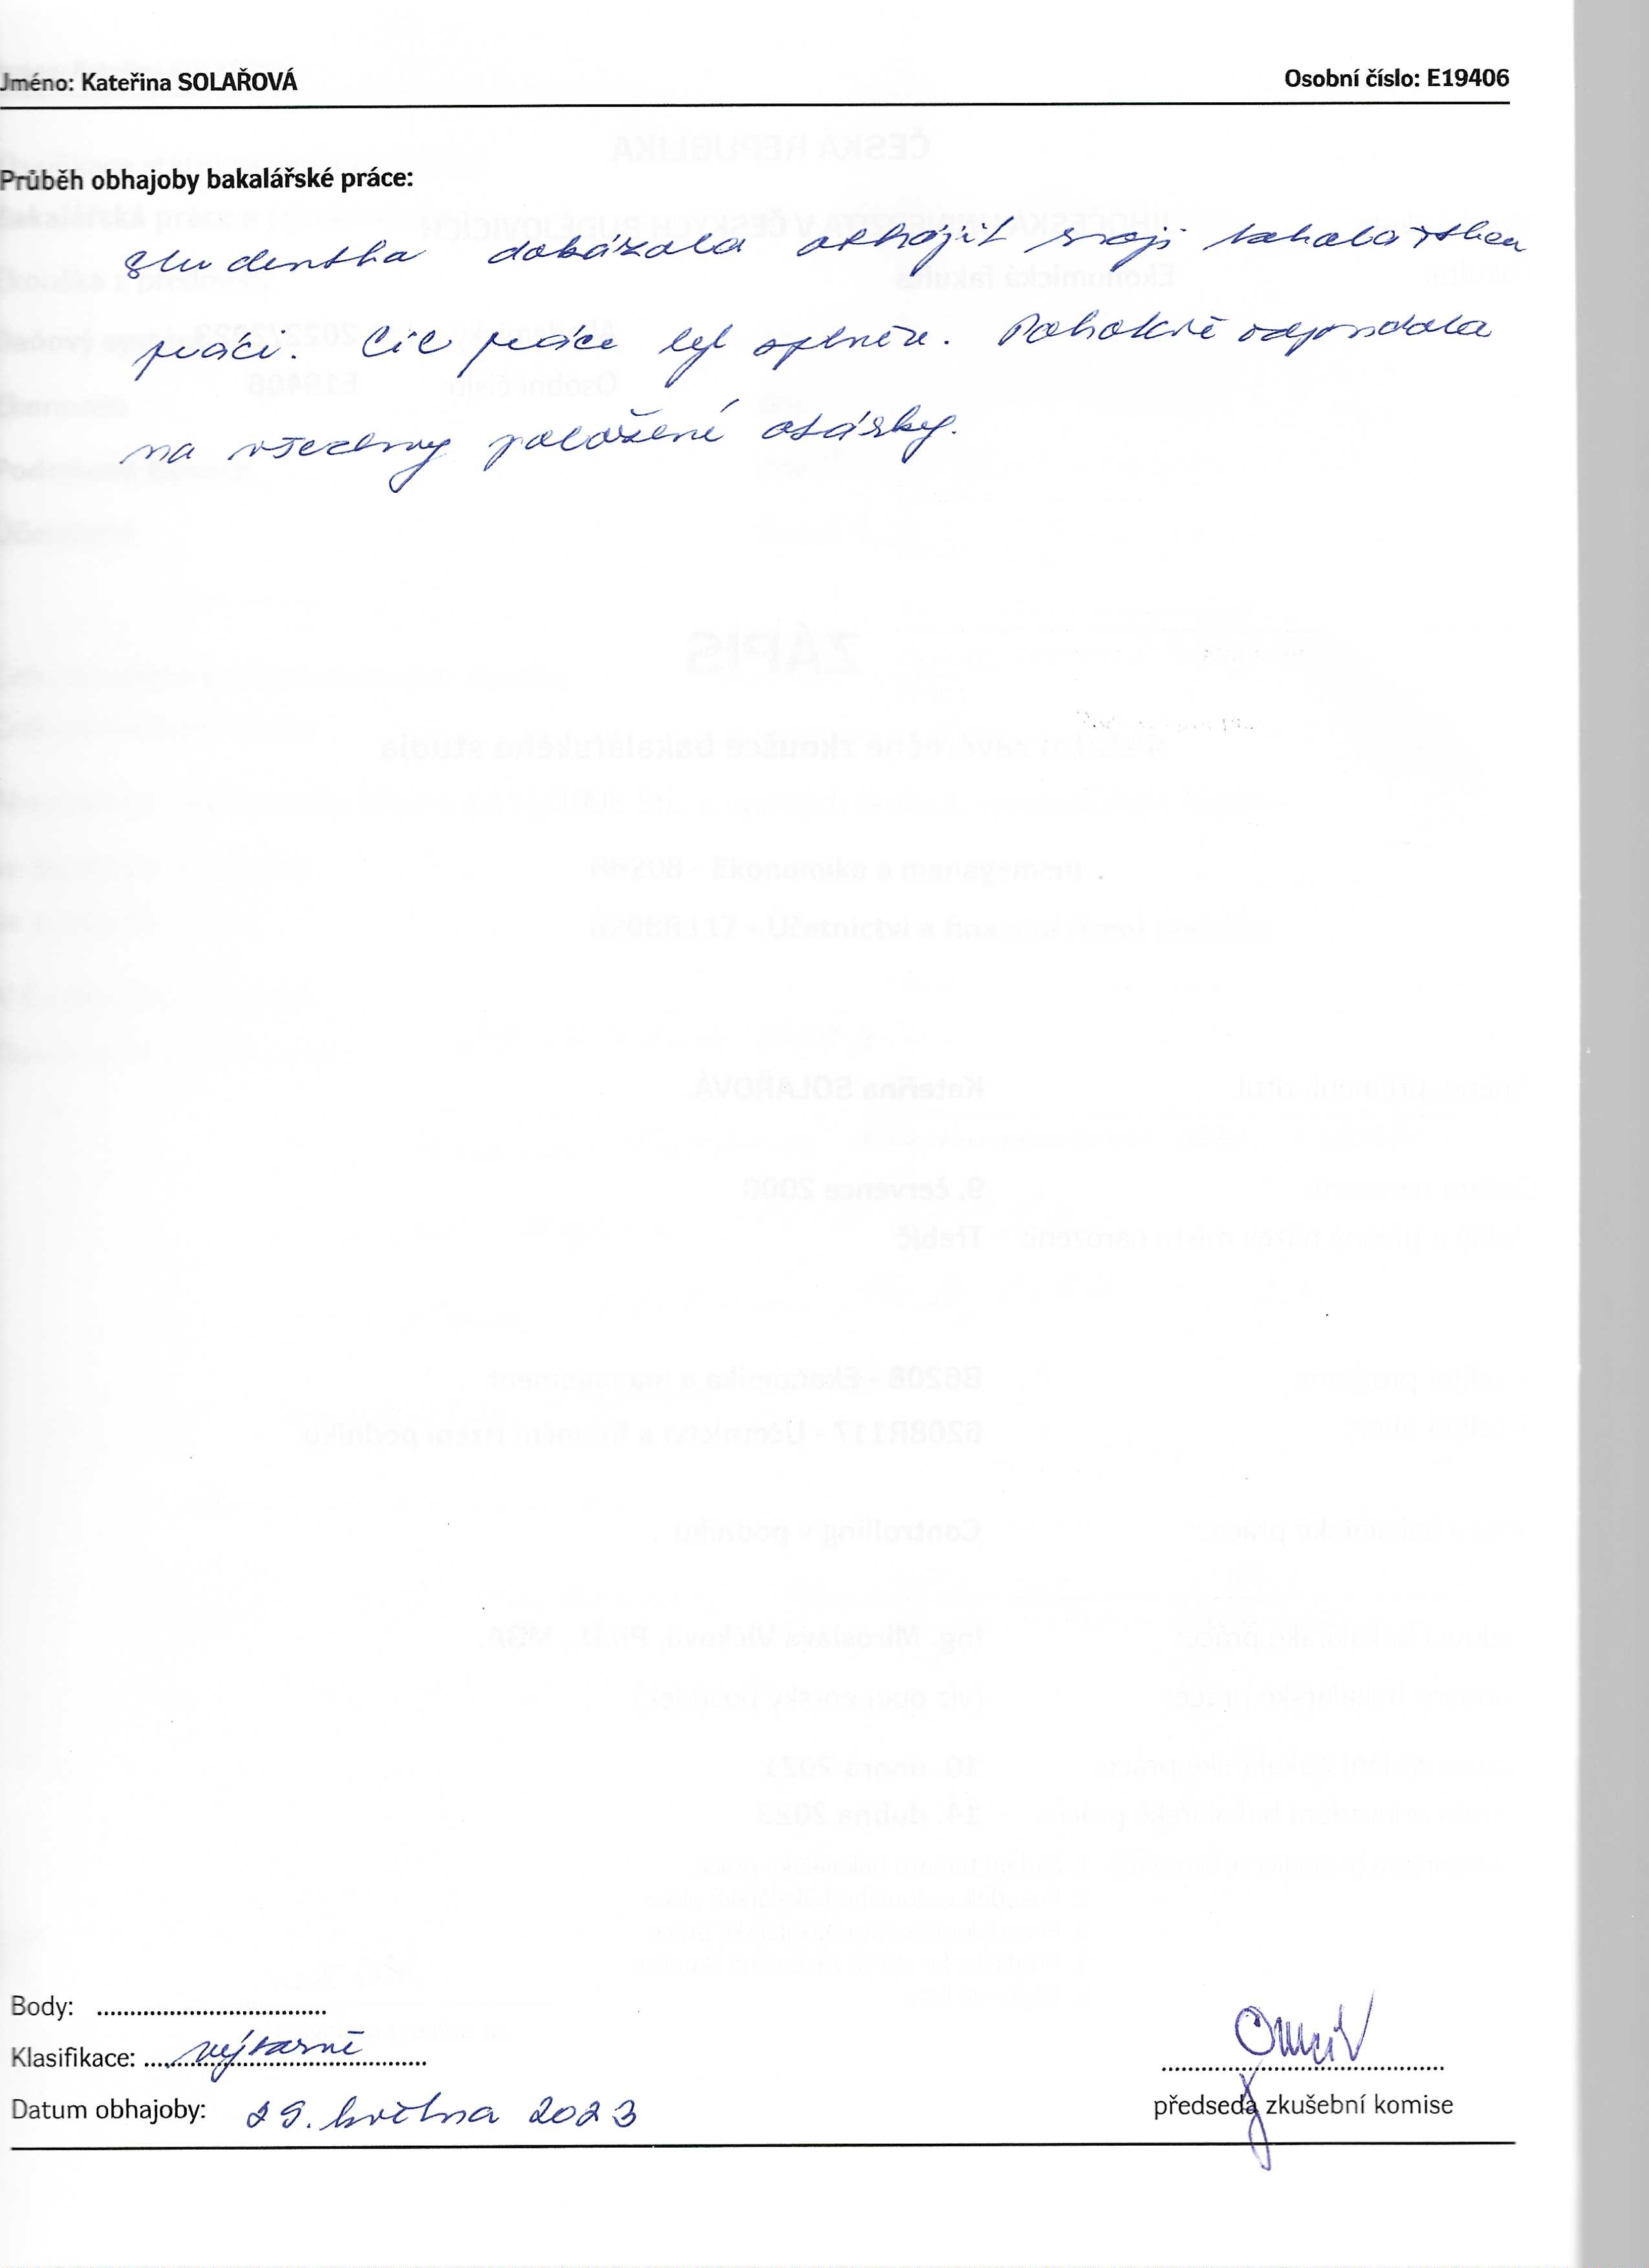 Jméno: Kateřina SOLAŘOVÁ Osobní číslo: E19406
Průběh obhajoby bakalářské práce:
Studentka dokázala obhájit svoji bakalářskou
práci. Cíl práce byl splněn. Pohotově odpovídala
na všechny položené otázky.
Body: ...................................
Klasifikace: výborně
Datum obhajoby: 29. května 2023
předseda zkušební komise